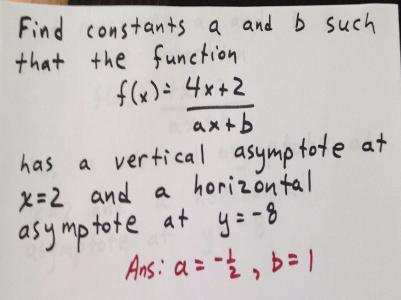 Find constants a and b such
that the function
f(x) = 4x+2
ax+b
has a vertical asymptote at
x=2 and a horizontal
asymptote at y=-8
Ans: a = -1/2, b=1